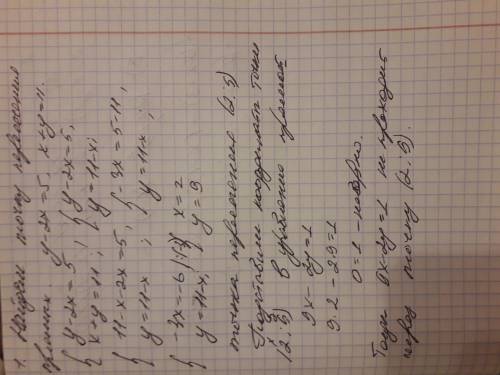 1. Найдем точку пересечения
прямых y-2x=5, x+y=11.
{ y-2x=5 ; { y-2x=5,
x+y=11 ; y=11-x;
{ 11-x-2x=5, { -3x=5-11,
y=11-x ; y=11-x ;
{ -3x=-6 |:(-3) { x=2
y=11-x, y=9
точка пересечения (2; 9)
Подставим координаты точки
(2; 9) в уравнение прямой
9x-2y=1
9·2-2·9=1
0=1 - неверно.
9x-2y=1 не проходит
через точку (2; 9).